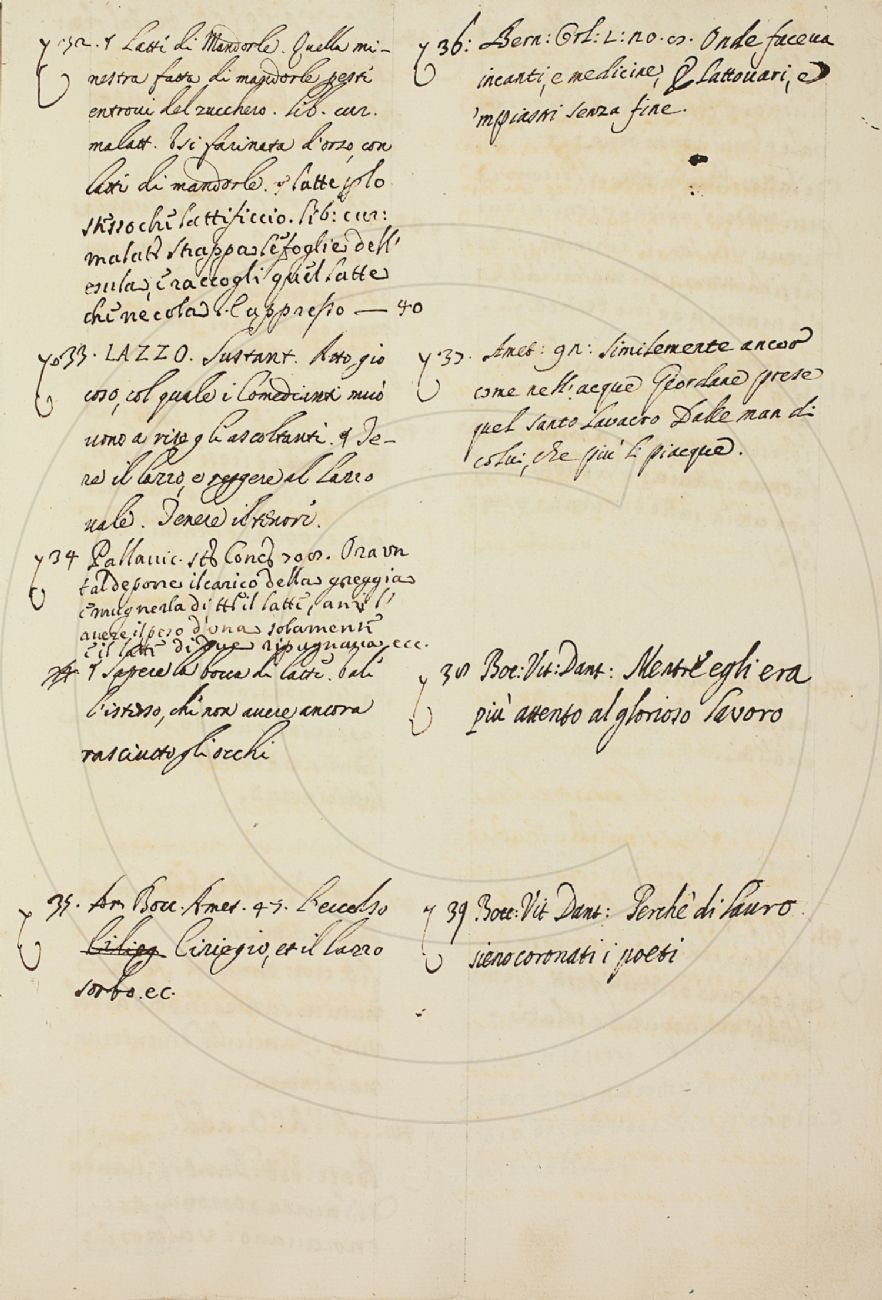 32. ¶ Latte di Mandorle. Quella mi-
nestra fatta di mandorle peste
entrovi del zucchero. Lib. cur.
malatt. Usi farinata d'orzo, con
latte di mandorle. ¶ latte
stesso che lattificcio. Lib: cur:
malatt strappa le foglie dell'
esula, e raccogli quel latte
che ne cola. E appresso — 40
33. LAZZO. Sustant. Atto gio
coso, col quale i Comedianti muo
vono a riso gli ascoltanti. ¶ Te-
re il lazzo, e reggere al lazzo
vale. Tenere il tenore.
34 Pallavic. Conc. Ora un
tal deporre il carico della greggia
e mugnerla di tt il latte, anzi l'
avere il peso d'una solamente
e il latte di due ripugnava ecc.
¶ Sapere la bocca di latte. vale
l'istesso, che non avere ancora
rasciutto gli occhi
35. Am Bocc. Amet. 47. L'eccelso
Ciliegio, et il lazzo
sorbo. ec.
36: Bern: Orl: 1: 20. Onde faceva
incanti, e medicine, e lattovari, e
'mpiastri senza fine.
37. Amet: 92: Similemente ancor
come nell'acque Giordane prese
quel santo lavacro Dalle man di
colui, che più li piacque.
38 Boc: Vit: Dant: Mentre egli era
più attento al glorioso lavoro
39 Bocc: Vit Dant: Perchè di lauro
sieno coronati i poeti